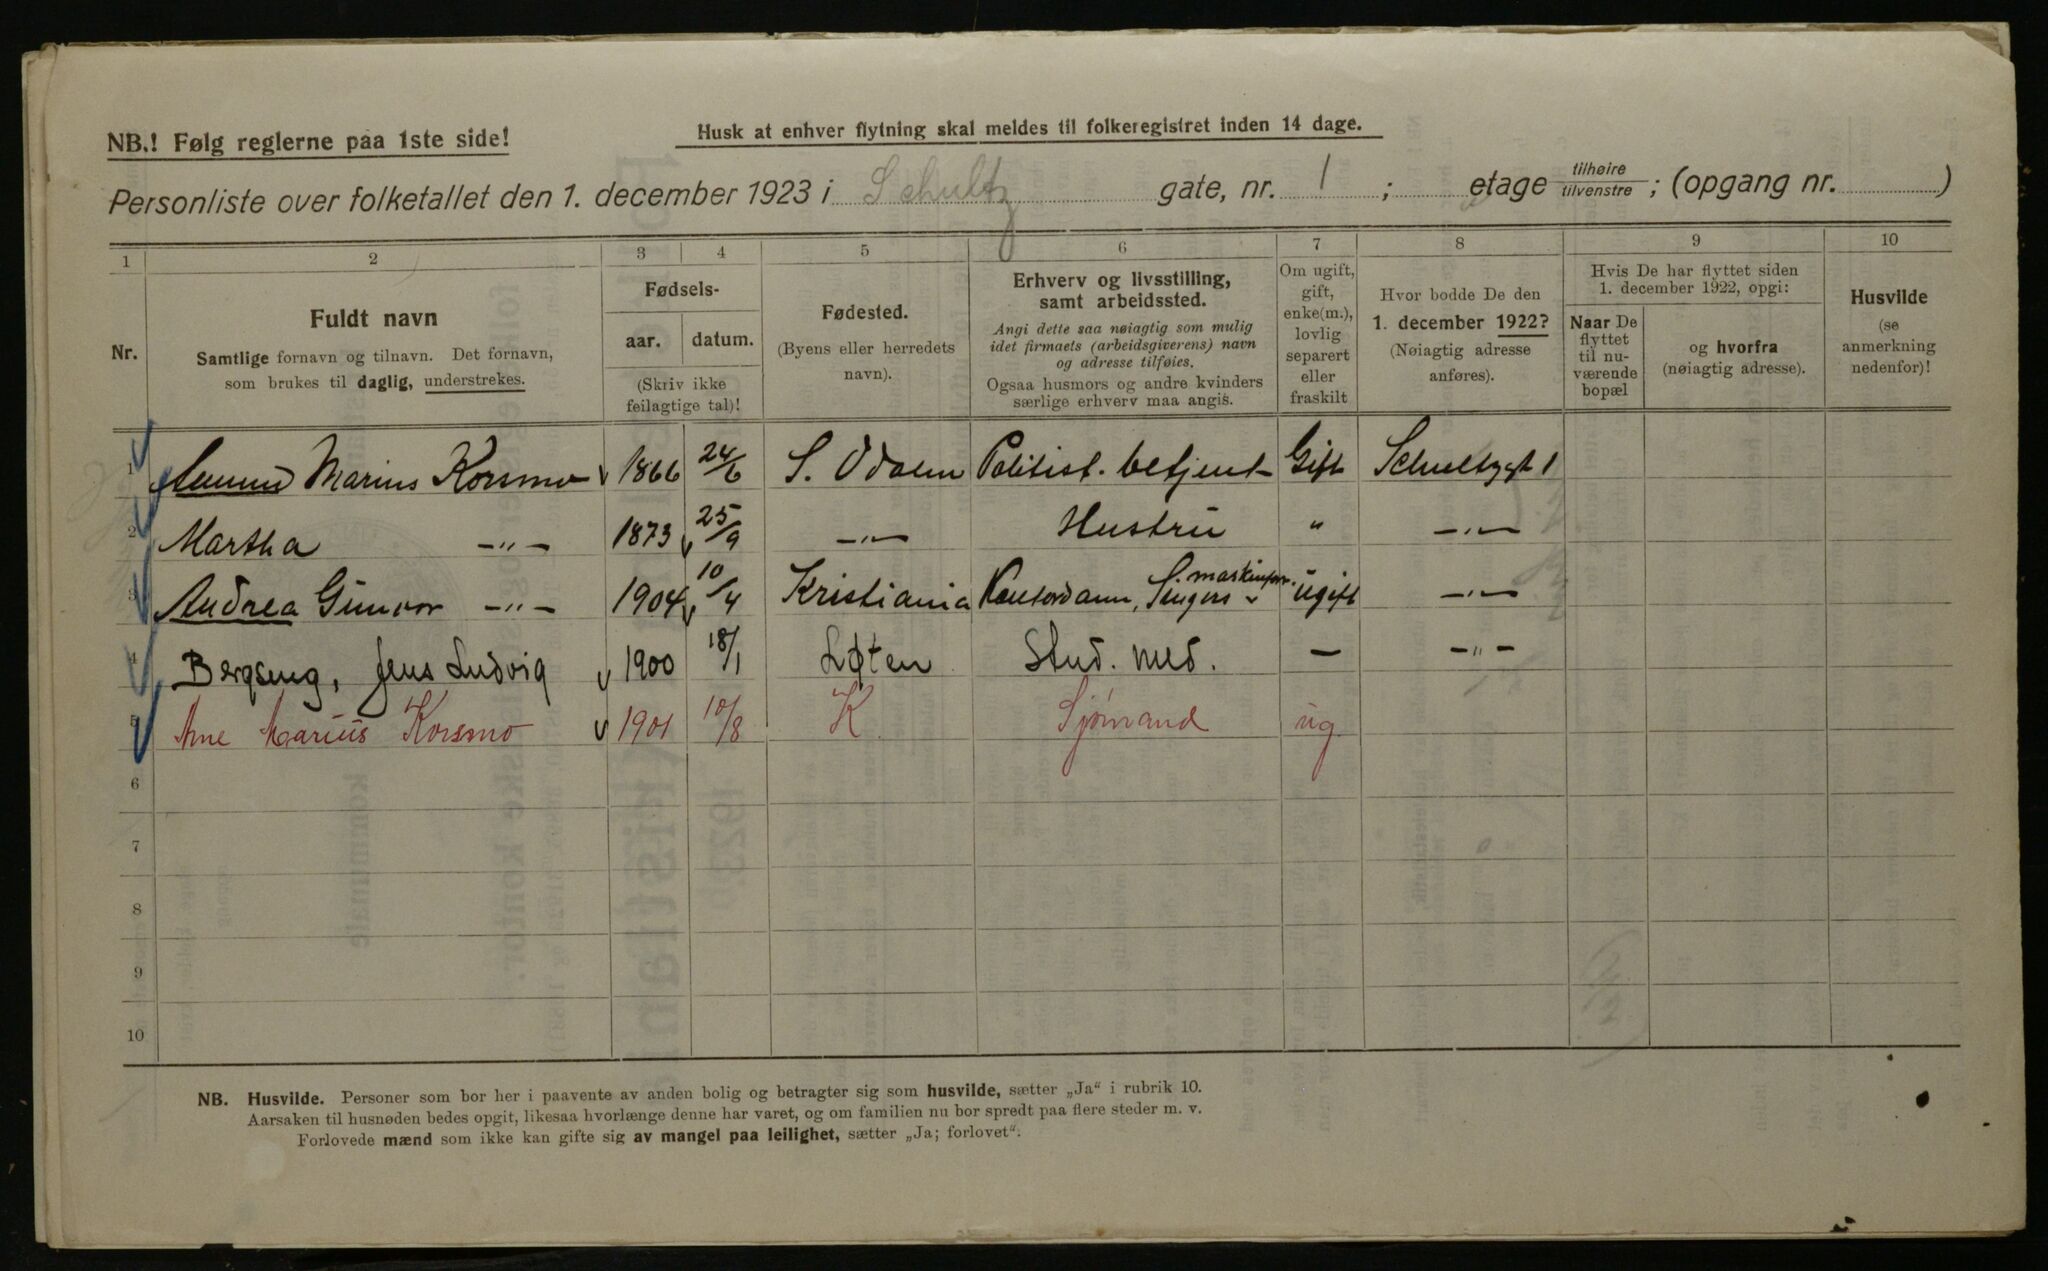 NB.! Følg reglerne paa 1ste side!
Husk at enhver flytning skal meldes til folkeregistret inden 14 dage.
Personliste over folketallet den 1. december 1923 i Schultz gate, nr. 1 ; etage tilhøire tilvenstre ; (opgang nr. )
1 2 3 4 5 6 7 8 9 10
Nr.
Fuldt navn
Samtlige fornavn og tilnavn. Det fornavn,
som brukes til daglig, understrekes.
Fødsels-
aar. datum.
(Skriv ikke
feilagtige tal)!
Fødested.
(Byens eller herredets
navn).
Erhverv og livsstilling,
samt arbeidssted.
Angi dette saa nøiagtig som mulig
idet firmaets (arbeidsgiverens) navn
og adresse tilføies.
Ogsaa husmors og andre kvinders
særlige erhverv maa angis.
Om ugift,
gift,
enke(m.),
lovlig
separert
eller
fraskilt
Hvor bodde De den
1. december 1922?
(Nøiagtig adresse
anføres).
Hvis De har flyttet siden
1. december 1922, opgi:
Naar De
flyttet
til nu-
værende
bopæl
og hvorfra
(nøiagtig adresse).
Husvilde
(se
anmerkning
nedenfor)!
1 Amund Marius Korsmo 1866 24/6 S. Odalen Politist. betjent Gift Schultzgt 1
2 Martha -"- 1873 25/9 -"- Hustru " -"-
3 Andrea Gunvor -"- 1904 10/4 Kristiania Kontordame, Singers maskinforr. ugift -"-
4 Bergseng, Jens Ludvig 1900 18/1 Løten Stud. med. - -"-
5 Arne Marius Korsmo 1901 10/8 K Sjømand ug
6
7
8
9
10
NB. Husvilde. Personer som bor her i paavente av anden bolig og betragter sig som husvilde, sætter „Ja“ i rubrik 10.
Aarsaken til husnøden bedes opgit, likesaa hvorlænge denne har varet, og om familien nu bor spredt paa flere steder m. v.
Forlovede mænd som ikke kan gifte sig av mangel paa leilighet, sætter „Ja; forlovet“.